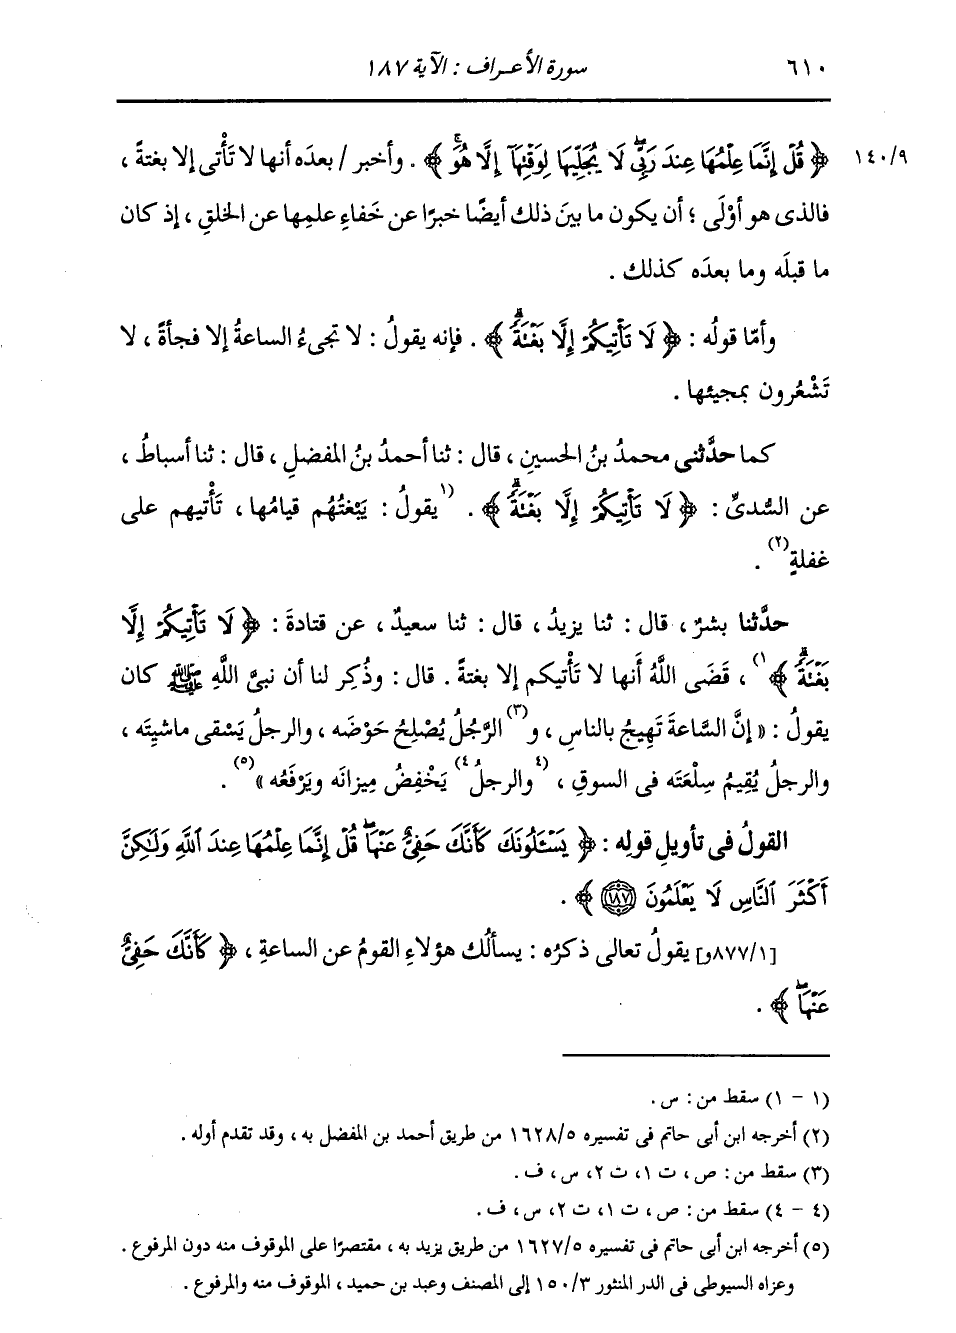 ٦١٠ سورة الأعراف : الآية ١٨٧
١٤٠/٩ ﴿ قُلْ إِنَّمَا عِلْمُهَا عِندَ رَبِّي لَا يُجَلِّيهَا لِوَقْتِهَآ إِلَّا هُوَ ﴾ . وأخبر / بعدَه أنها لا تَأْتى إلا بغتةً ،
فالذى هو أوْلَى ؛ أن يكون ما بينَ ذلك أيضًا خبرًا عن خَفاءِ علمِها عن الخلقِ ، إذ كان
ما قبلَه وما بعدَه كذلك .
وأمّا قولُه : ﴿ لَا تَأْتِيكُمْ إِلَّا بَغْتَةً ﴾ . فإنه يقولُ : لا تجىءُ الساعةُ إلا فجأةً ، لا
تَشْعُرون بمجيئها .
كما حدَّثنى محمدُ بنُ الحسينِ ، قال : ثنا أحمدُ بنُ المفضلِ ، قال : ثنا أسباطُ ،
عن السُّدىِّ : ﴿ لَا تَأْتِيكُمْ إِلَّا بَغْتَةً ﴾ . (١يقولُ : يَبْغَتُهُم قيامُها ، تَأْتيهم على
غفلةٍ(٢) .
حدَّثنا بشرٌ ، قال : ثنا يزيدُ ، قال : ثنا سعيدٌ ، عن قتادةَ : ﴿ لَا تَأْتِيكُمْ إِلَّا
بَغْتَةً ﴾١) ، قَضَى اللَّهُ أنها لا تَأْتيكم إلا بغتةً . قال : وذُكِر لنا أن نبىَّ اللَّهِ ﷺ كان
يقولُ : « إنَّ السَّاعةَ تَهِيجُ بالناسِ ، و(٣) الرَّجُلُ يُصْلِحُ حَوْضَه ، والرجلُ يَسْقى ماشيتَه ،
والرجلُ يُقِيمُ سِلْعَتَه فى السوقِ ، (٤والرجلُ٤) يَخْفِضُ مِيزانَه ويَرْفَعُه »(٥) .
القولُ فى تأويلِ قولِه : ﴿ يَسْـَٔلُونَكَ كَأَنَّكَ حَفِيٌّ عَنْهَا قُلْ إِنَّمَا عِلْمُهَا عِندَ ٱللَّهِ وَلَٰكِنَّ
أَكْثَرَ ٱلنَّاسِ لَا يَعْلَمُونَ ١٨٧ ﴾ .
[٨٧٧/١و] يقولُ تعالى ذكرُه : يسألُك هؤلاءِ القومُ عن الساعةِ ، ﴿ كَأَنَّكَ حَفِيٌّ
عَنْهَا ﴾ .
(١ - ١) سقط من : س .
(٢) أخرجه ابن أبى حاتم فى تفسيره ١٦٢٨/٥ من طريق أحمد بن المفضل به ، وقد تقدم أوله .
(٣) سقط من : ص ، ت ١، ت ٢، س ، ف .
(٤ - ٤) سقط من : ص ، ت ١، ت ٢، س ، ف .
(٥) أخرجه ابن أبى حاتم فى تفسيره ١٦٢٧/٥ من طريق يزيد به ، مقتصرًا على الموقوف منه دون المرفوع .
وعزاه السيوطى فى الدر المنثور ١٥٠/٣ إلى المصنف وعبد بن حميد ، الموقوف منه والمرفوع .